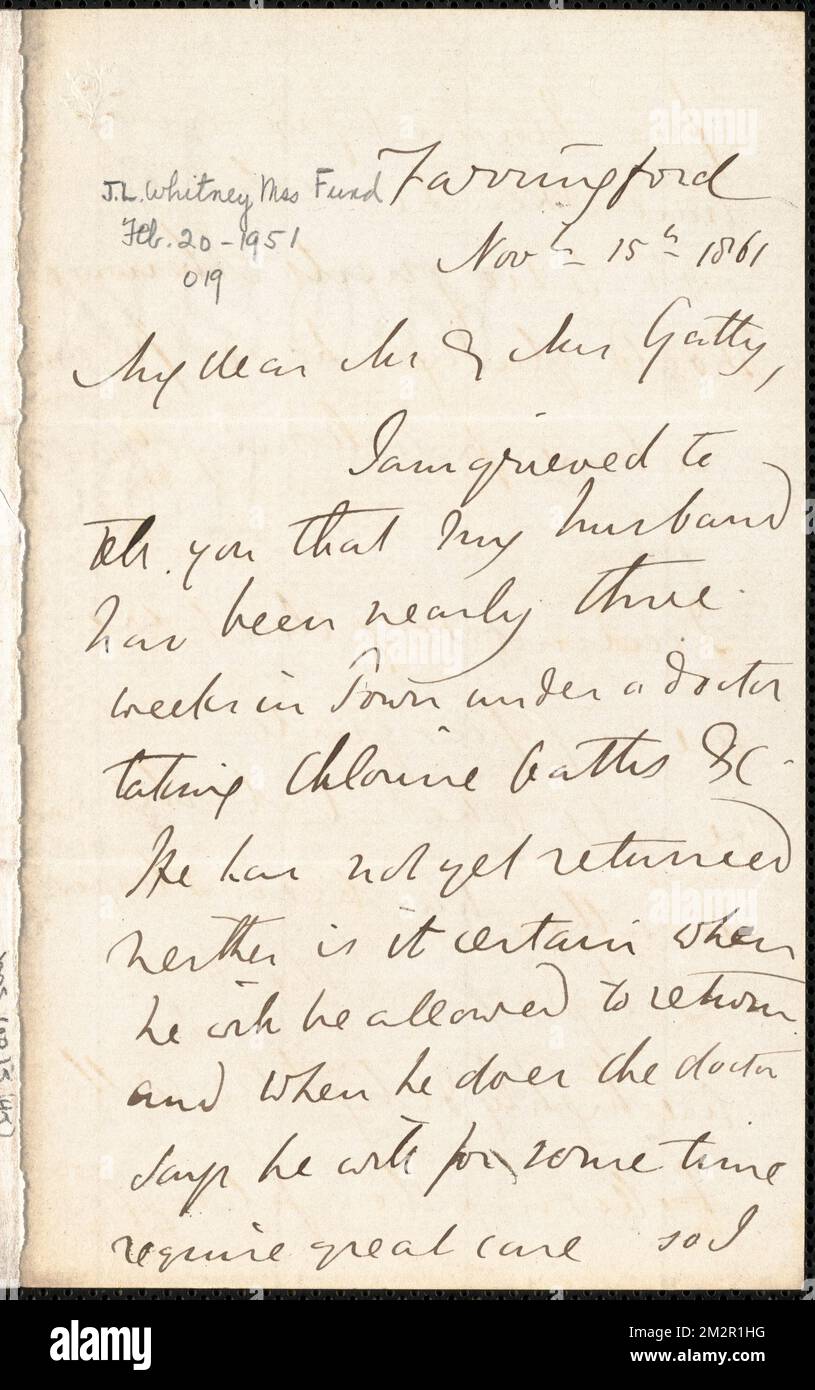 J.L. Whitney Mss Fund
Feb. 20-1951
019
Farringford
Novr 15th 1861
My dear Mr & Mrs Gatty,
I am grieved to
tell you that my husband
has been nearly three
weeks in Town under a doctor
taking Chlorine baths &c.
He has not yet returned
neither is it certain when
he will be allowed to return
and when he does the doctor
says he will for some time
require great care so I
alamy
alamy
alamy
alamy
Image ID: 2M2R1HG
www.alamy.com